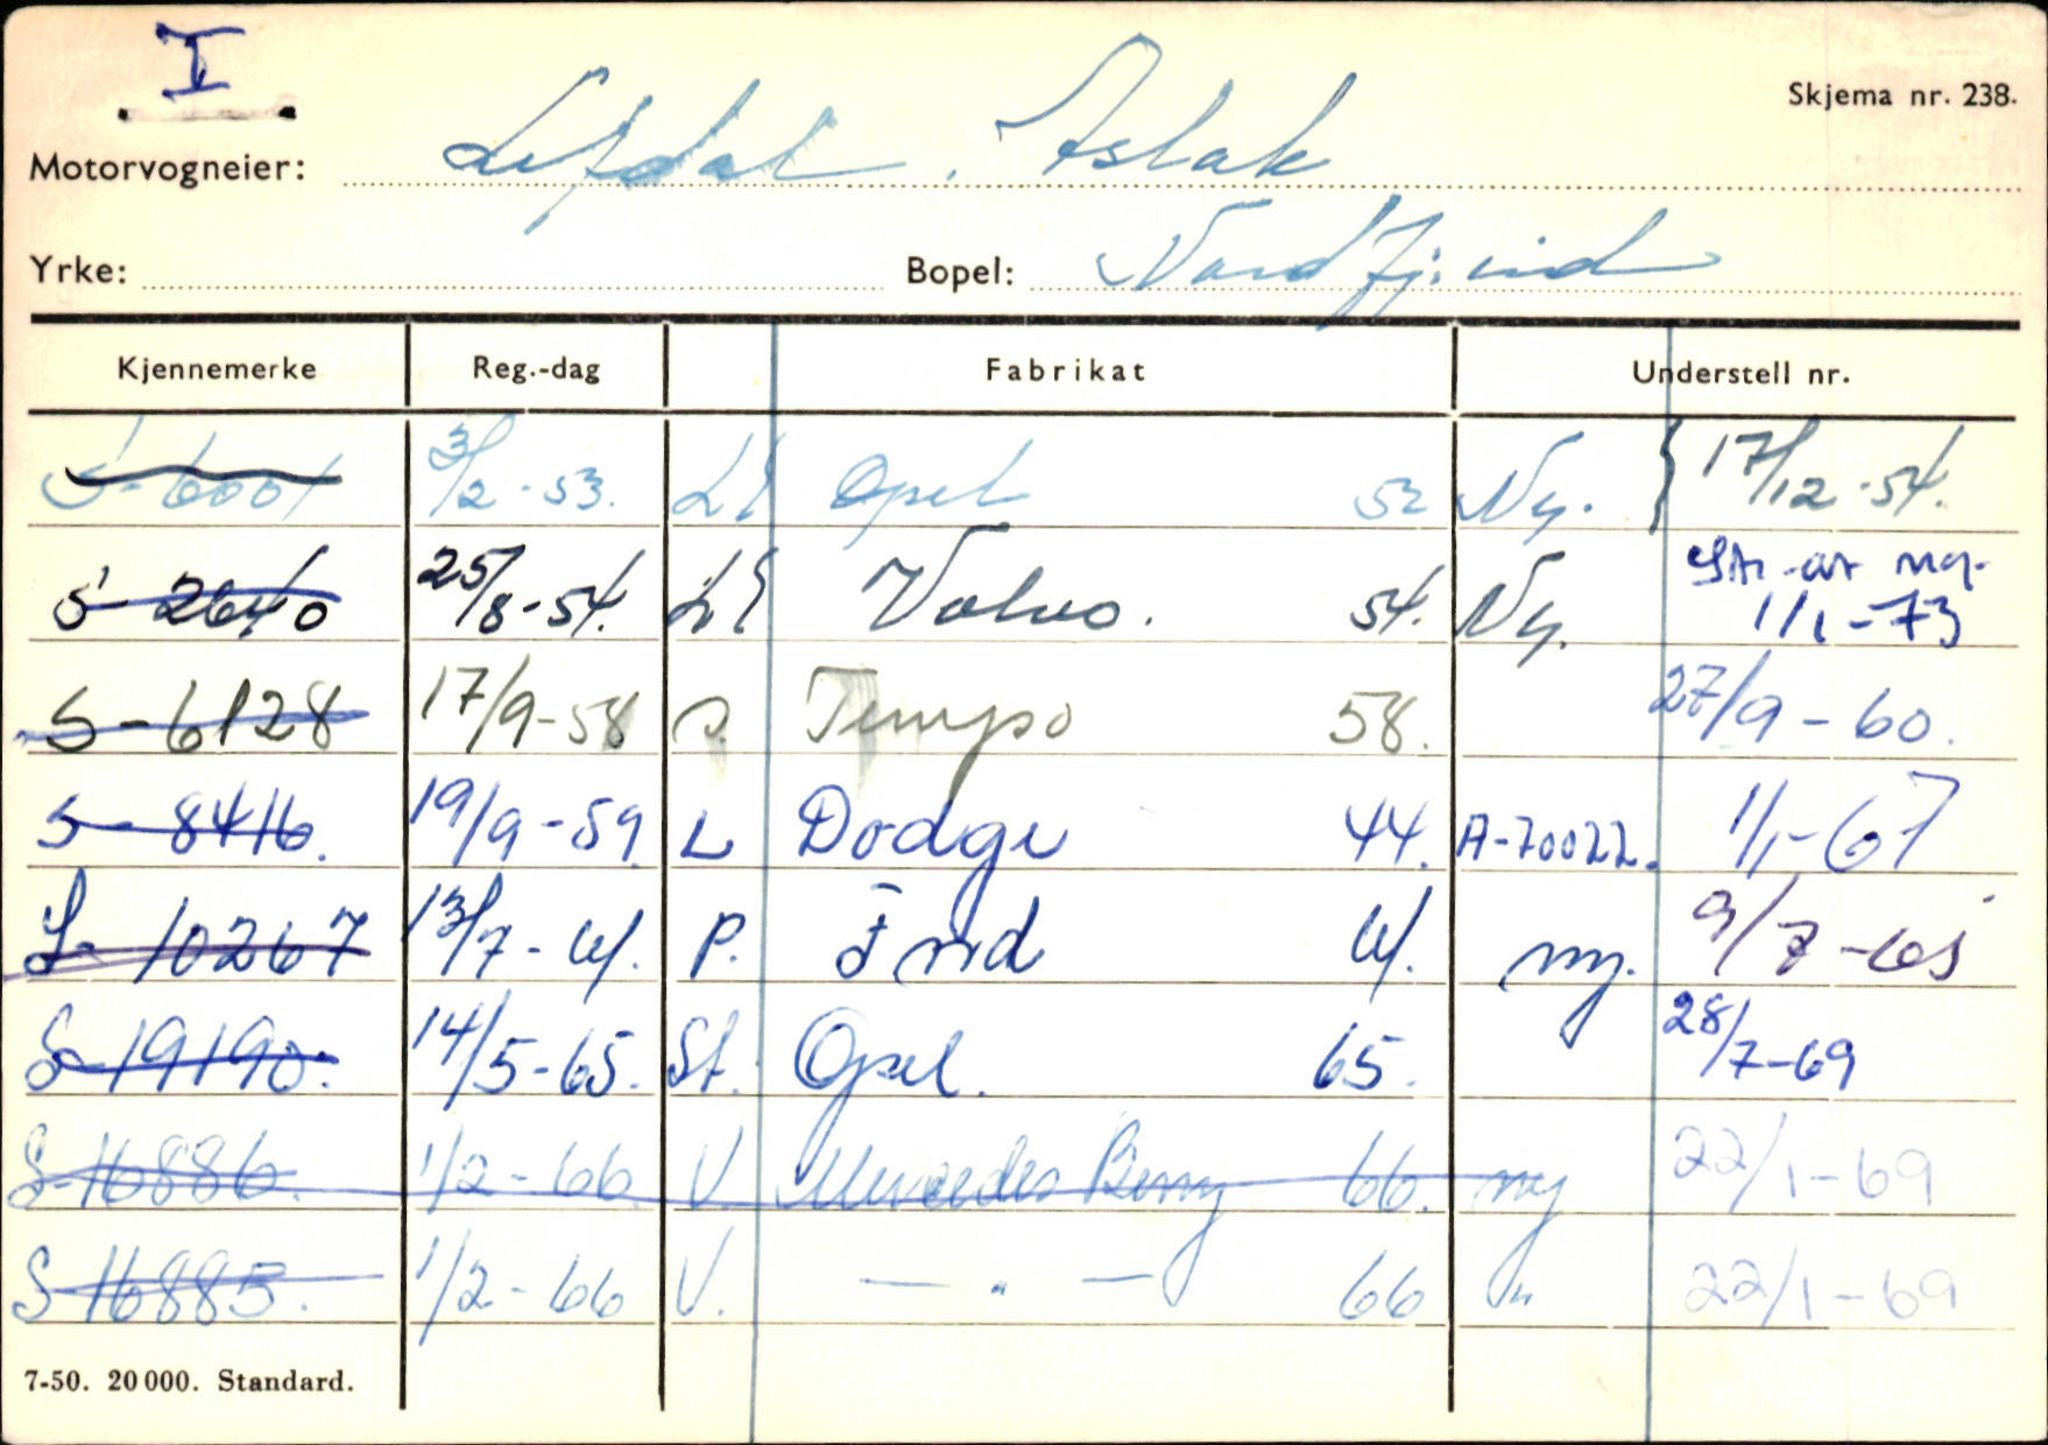 I
Skjema nr. 238.
Motorvogneier: Lefdal, Aslak
Yrke: Bopel: Nordfj.eid
Kjennemerke Reg.-dag Fabrikat Understell nr.
S-6001 3/2-53. L Opel 52 Ny. 17/12-54.
S-2640 25/8-54. L Volvo. 54. Ny. 1/1-73
S-6128 17/9-58 Tempo 58. 27/9-60.
S-8416. 19/9-59 L Dodge 44. A-70022. 1/1-67
S-10267 13/7-61. P. Ford 61. ny. 9/7-65
S-19190. 14/5-65. St. Opel. 65. 28/7-69
S-16886. 1/2-66 V. Mercedes Benz 66. ny 22/1-69
S-16885. 1/2-66 V. — " — 66 " 22/1-69
7-50. 20 000. Standard.